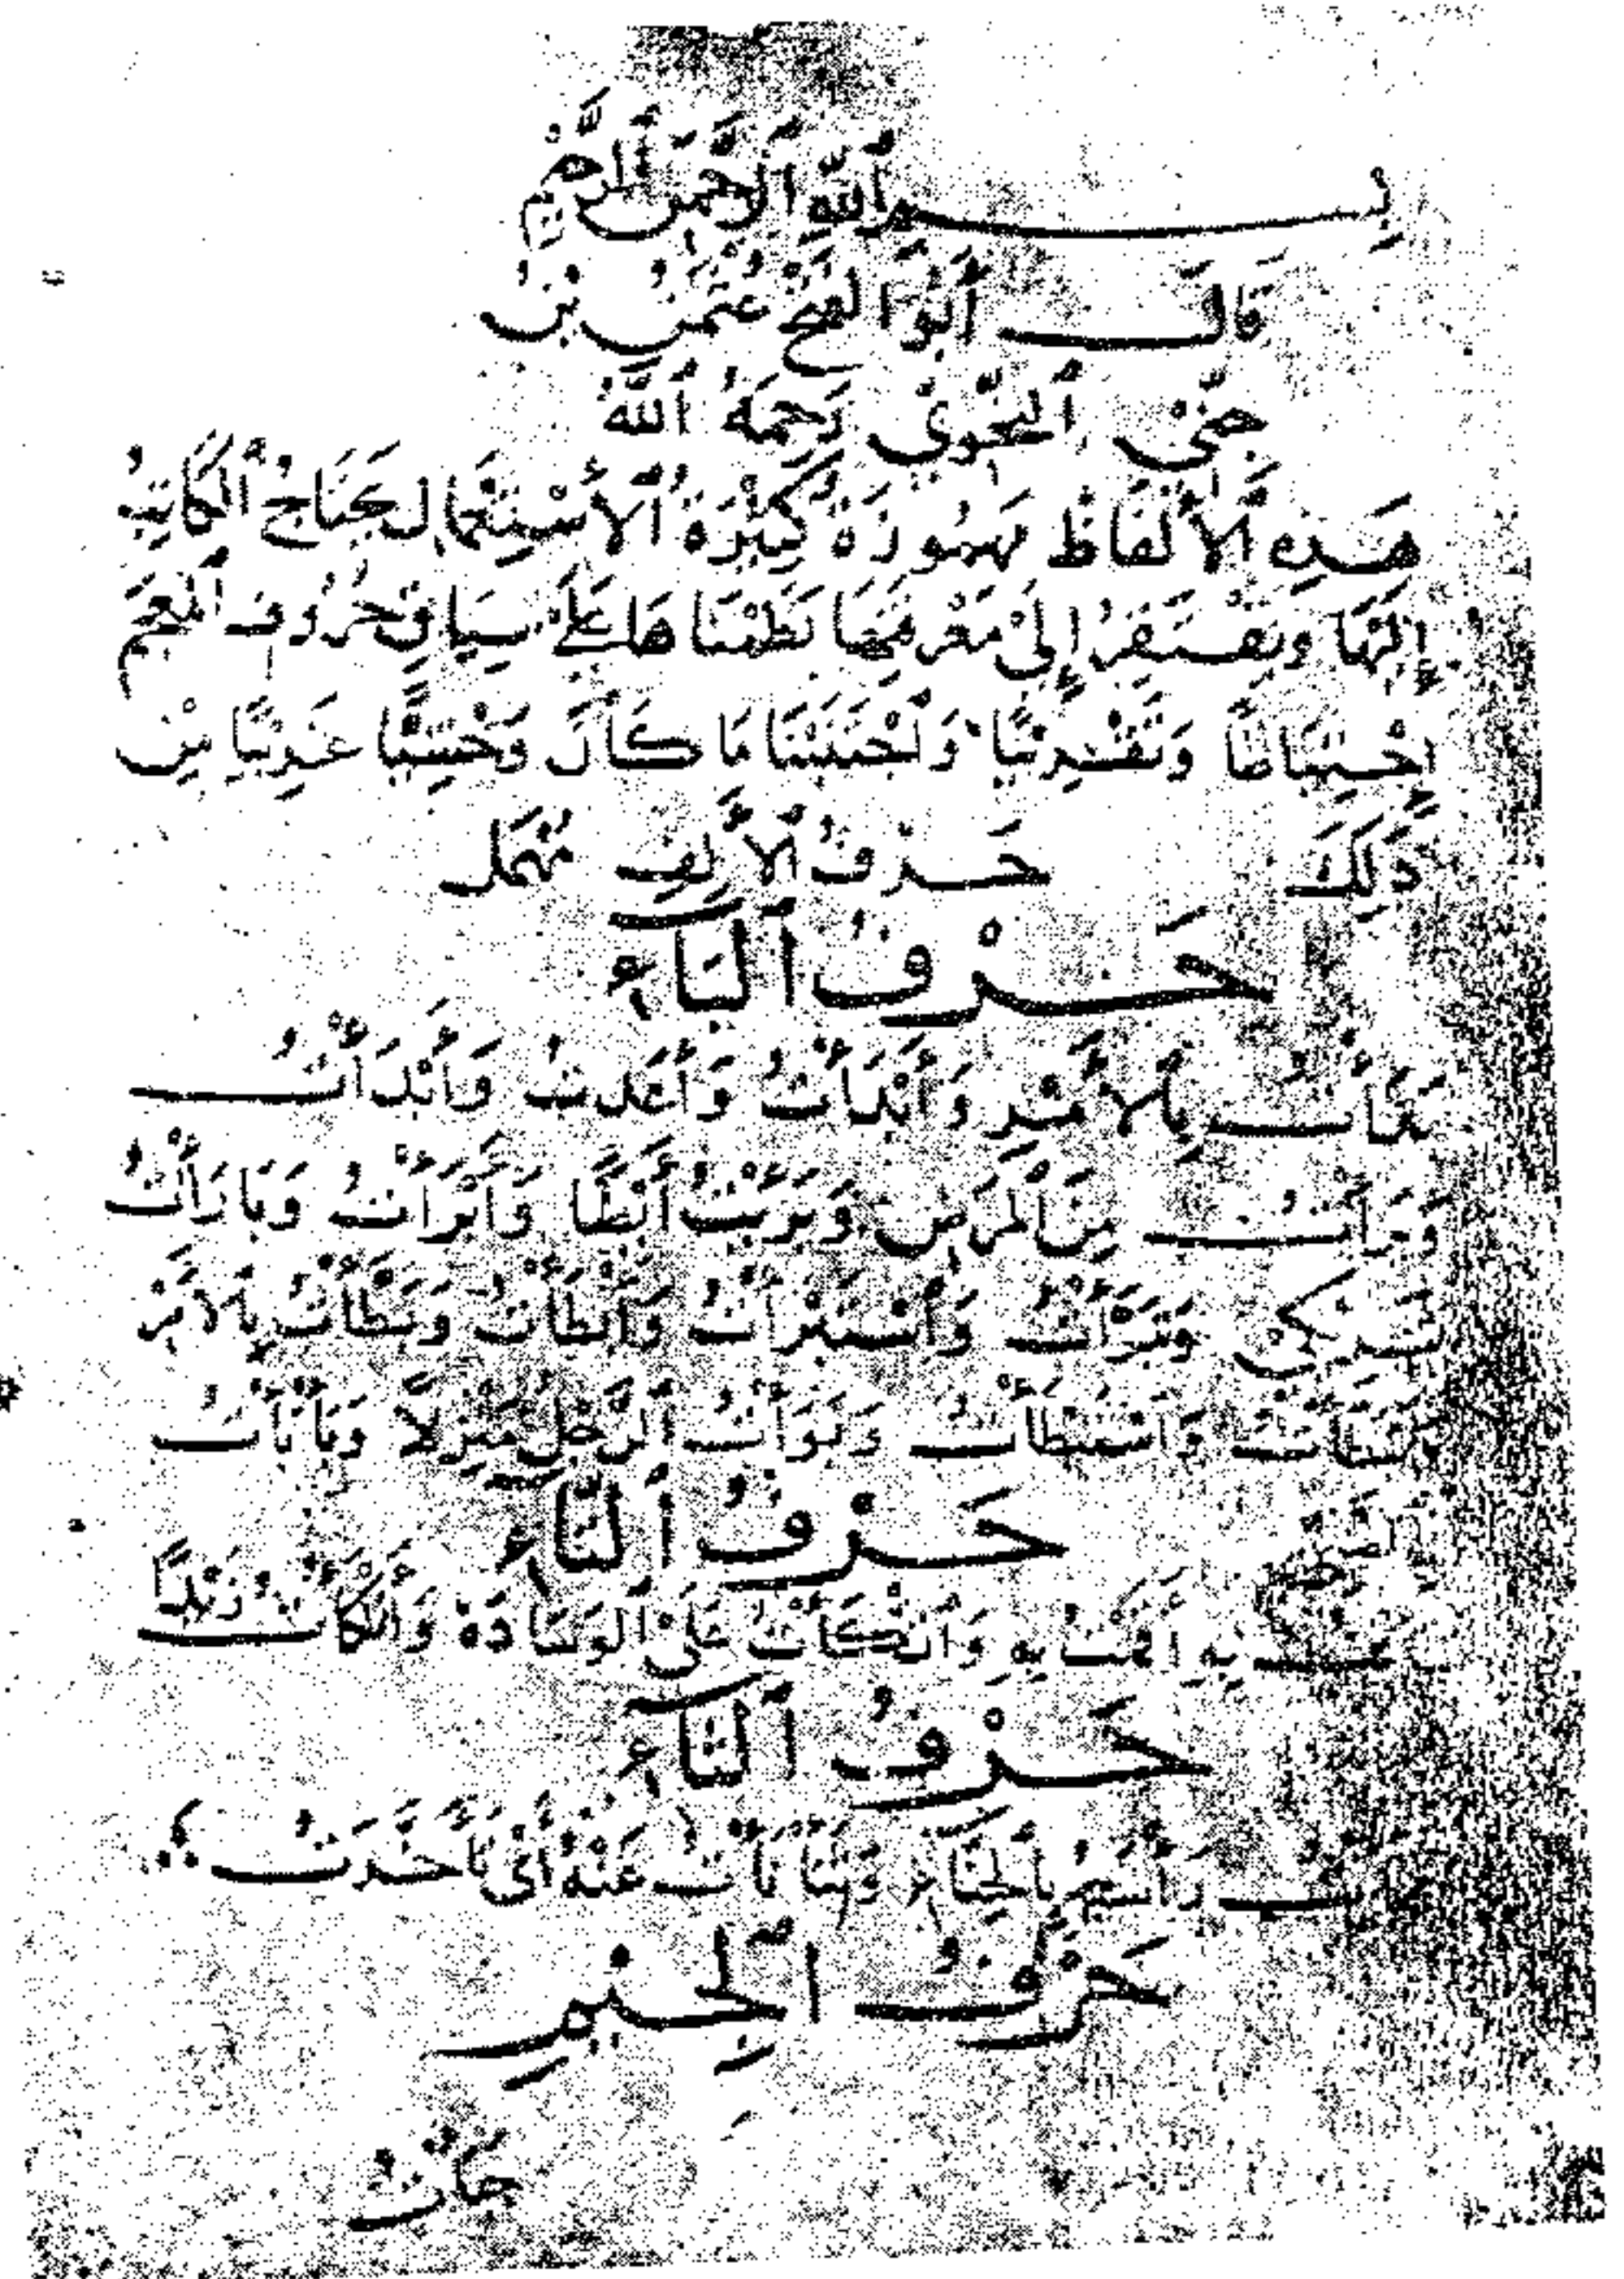 بِسْمِ ٱللَّهِ ٱلرَّحْمَنِ ٱلرَّحِيمِ
قَالَ أَبُو ٱلْفَتْحِ عُثْمَنُ بْنُ
جِنِّيْ ٱلنَّحْوِيُّ رَحِمَهُ ٱللَّهُ
هَذِهِ ٱلْأَلْفَاظُ مَهْمُوزَةٌ كَثِيْرَةُ ٱلْاسْتِعْمَالِ يَحْتَاجُ ٱلْكَاتِبُ
إِلَيْهَا وَيَفْتَقِرُ إِلَىْ مَعْرِفَتِهَا نَظَمْنَاهَا عَلَىْ سِيَاقِ حُرُوفِ ٱلْمُعْجَمِ
إِحْتِيَاطًا وَتَقْرِيْبًا وَٱجْتَنَبْنَا مَا كَانَ وَحْشِيًّا غَرِيْبًا مِنْ
ذَلِكَ حَرْفُ ٱلْأَلِفِ مُهْمَل
حَرْفُ ٱلْبَآءِ
بَدَأْتُ بِٱلْأَمْرِ وَأَبْدَأْتُ وَأَعَدتُ وَٱبْتَدَأْتُ
وَبَرَأْتُ مِنَ ٱلْمَرَضِ وَبَرِئْتُ أَيْضًا وَأَبْرَأْتُ وَبَارَأْتُ
شَرِيْكِيْ وَتَبَرَّأْتُ وَٱسْتَبْرَأْتُ وَأَبْطَأْتُ وَبَطَّأْتُ بِٱلْأَمْرِ
وَتَبَاطَأْتُ وَاسْتَبْطَأْتُ وَبَوَّأْتُ ٱلرَّجُلَ مَنْزِلًا وَبَأْبَأْتُ
ٱلصَّبِيَّ
حَرْفُ ٱلتَّآءِ
بِهِ أَقَمْتُ بِهِ وَٱتَّكَأْتُ عَلَىْ ٱلْوِسَادَةِ وَأَتْكَأْتُ زَيْدًا
حَرْفُ ٱلثَّآءِ
رَأْسَهُ بِٱلْحِنَّآءِ وَتَثَأْثَأْتُ عَنْهُ أَيْ تَأَخَّرْتُ
حَرْفُ ٱلْجِيْمِ
جَأَتْ